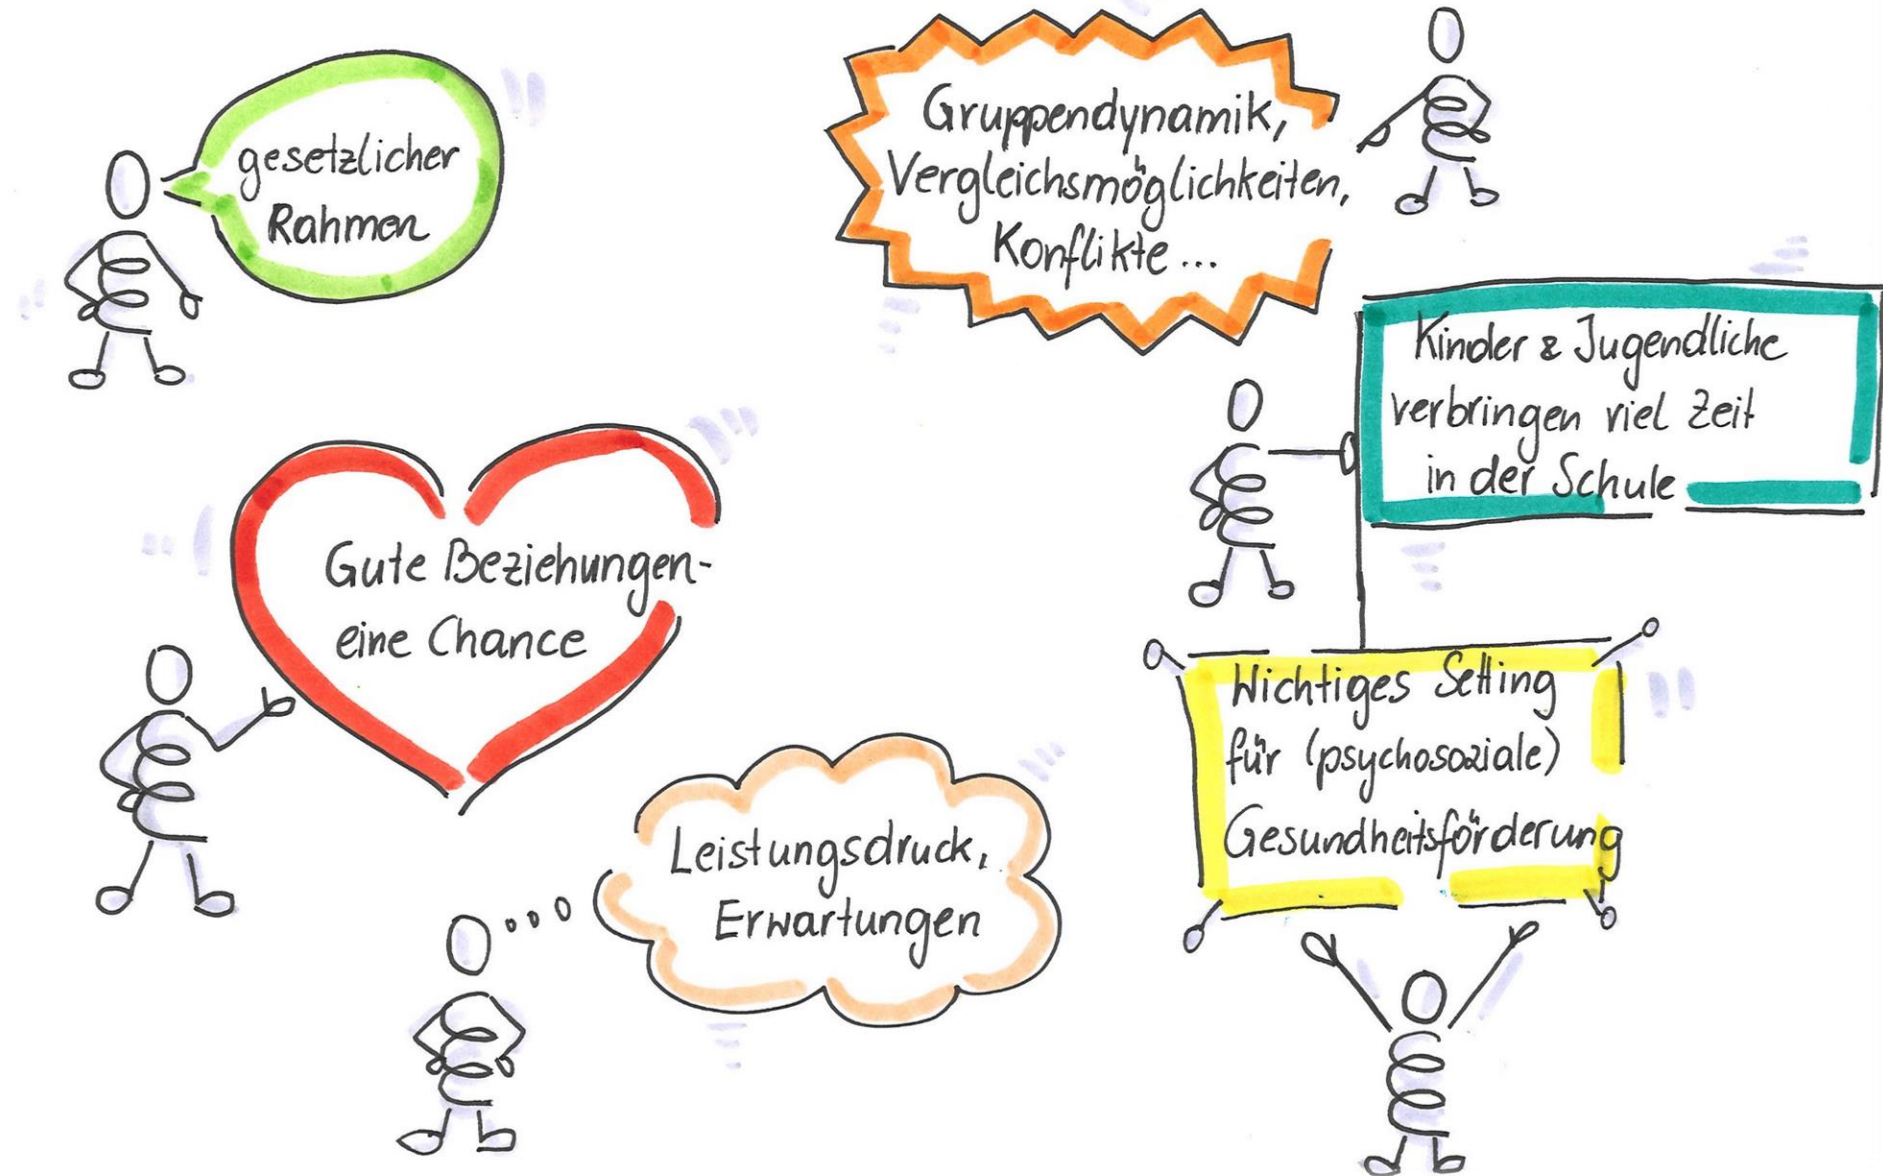 gesetzlicher
Rahmen
Gruppendynamik,
Vergleichsmöglichkeiten,
Konflikte ...
Kinder & Jugendliche
verbringen viel Zeit
in der Schule
Gute Beziehungen-
eine Chance
Wichtiges Setting
für (psychosoziale)
Gesundheitsförderung
Leistungsdruck,
Erwartungen